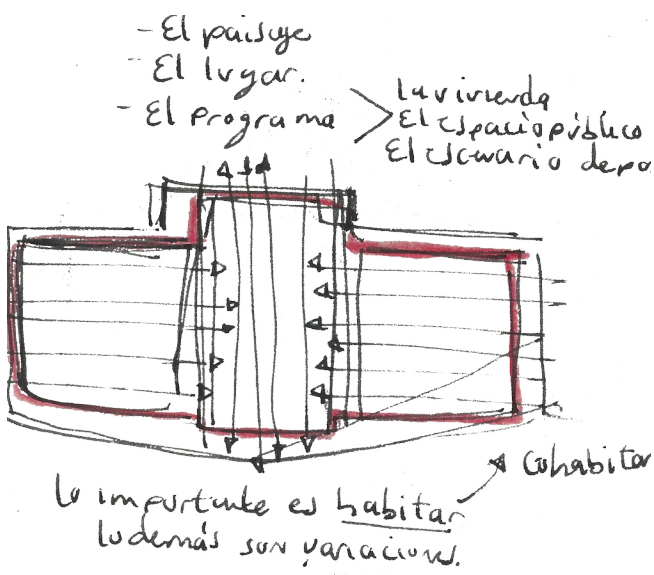 - El paisaje
- El lugar.
- El programa
La vivienda
El espacio público
El escenario depo
Cohabitar
Lo importante es habitar
lo demás son variaciones.